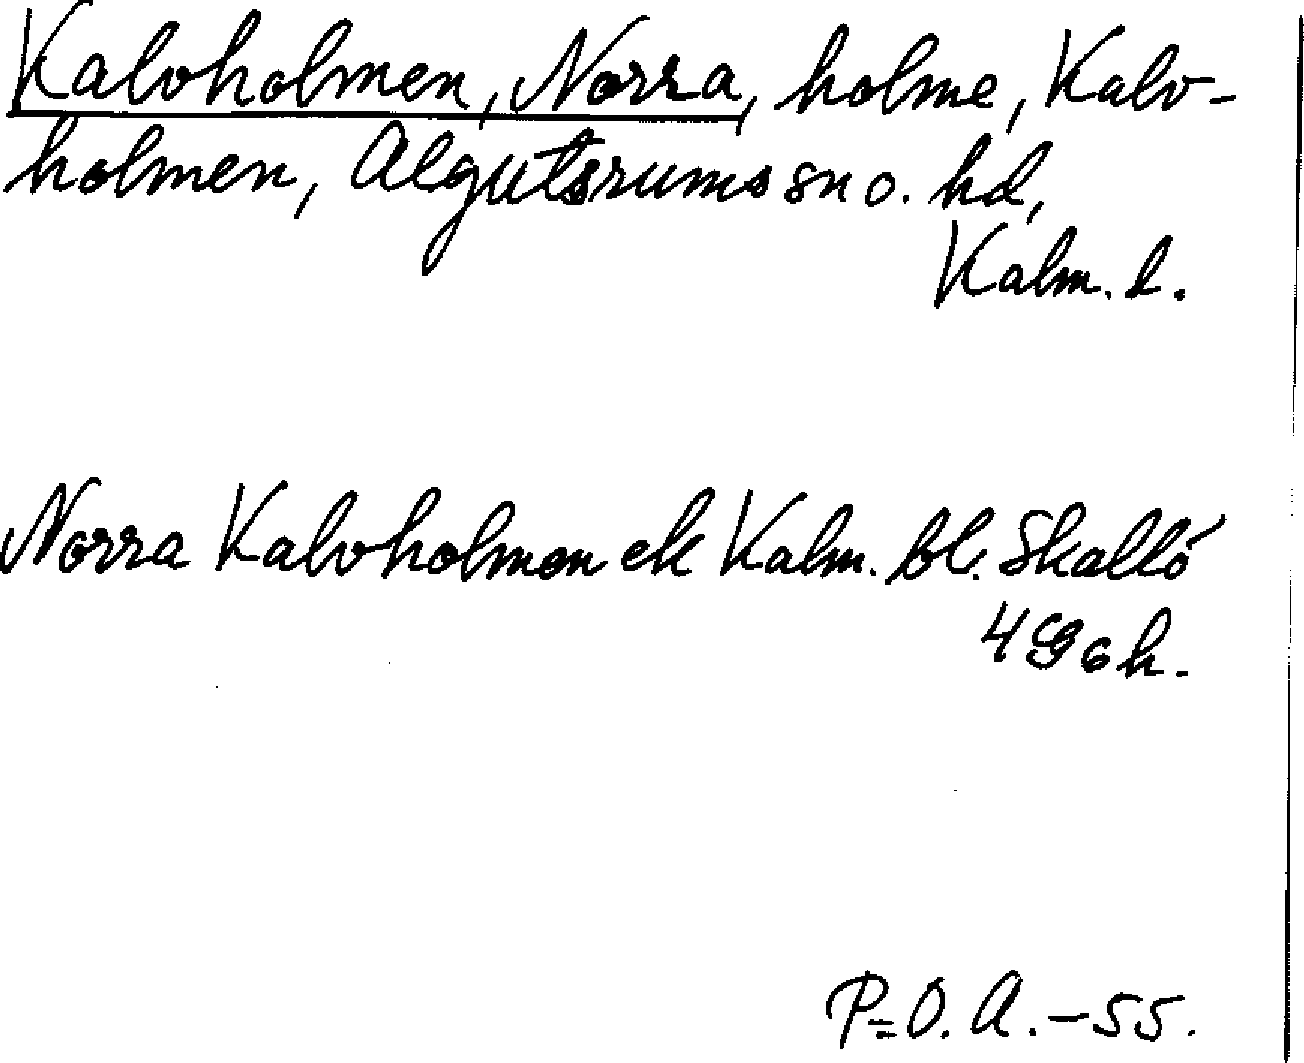 Kalvholmen, Norra, holme, Kalv-
holmen, Algutsrums sn o. hd,
Kalm. l.
Norra Kalvholmen ek Kalm. bl. Skallö
4 G o h.
P=O. A. -55.